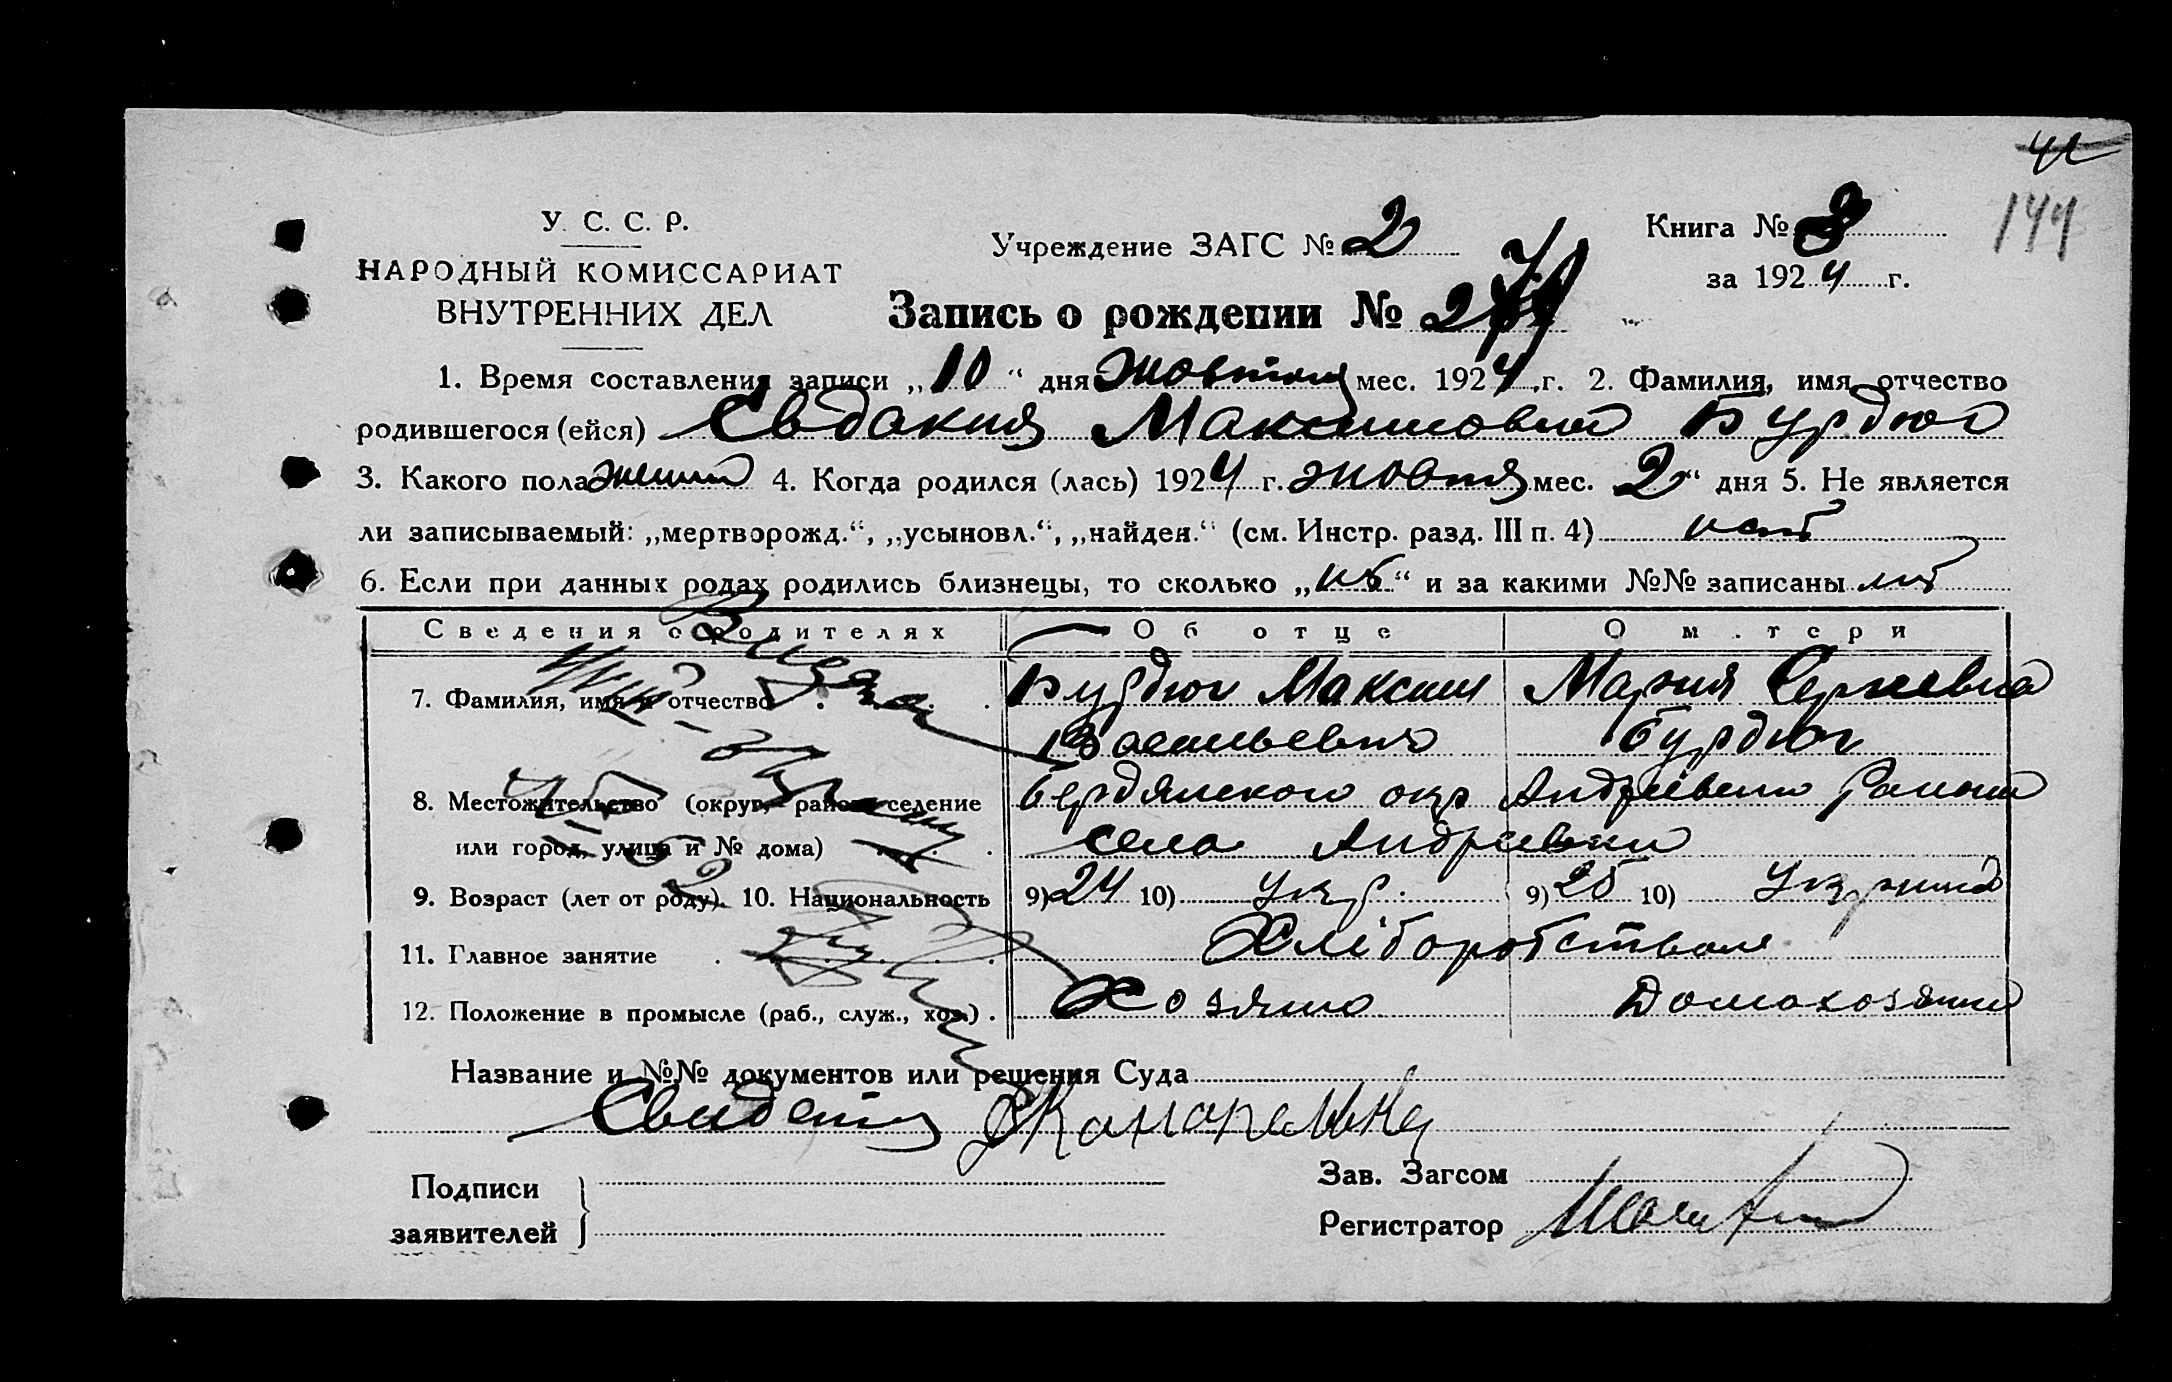 144
У. С. С. Р.
НАРОДНЫЙ КОМИССАРИАТ
ВНУТРЕННИХ ДЕЛ
Учреждение ЗАГС № 2
Книга № 8
за 1924 г.
Запись о рождении №
1. Время составления записи „10“ дня Жовтня мес. 1924 г. 2. Фамилия, имя, отчество
родившегося (ейся) Евдокия Максимовна Бурдюг
3. Какого пола 4. Когда родился (лась) 1924 г. жовтня мес. 2“ дня 5. Не является
ли записываемый: „мертворожд.“, „усыновл.“, „найден.“ (см. Инстр. разд. III п. 4) нет
6. Если при данных родах родились близнецы, то сколько „ “ и за какими №№ записаны
Сведения о родителях Об отце О матери
7. Фамилия, имя и отчество Бурдюг Максим Мария Сергеевна
Васильевич Бурдюг
8. Местожительство (округ, район, селение Бердянского окр Андреевского Района
или город, улица и № дома) села Андреевки
9. Возраст (лет от роду). 10. Национальность 9) 24 10) Укр. 9) 25 10)
11. Главное занятие Хліборобством
12. Положение в промысле (раб., служ., хоз.) . Хозяин
Название и №№ документов или решения Суда
Подписи
заявителей
Зав. Загсом
Регистратор